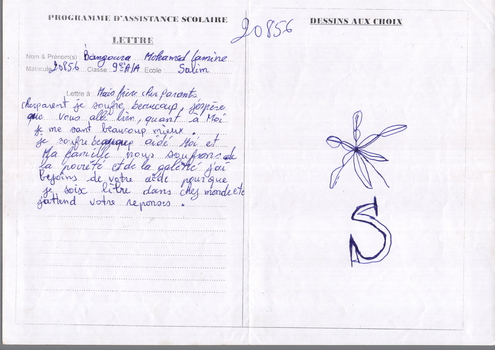 PROGRAMME D'ASSISTANCE SCOLAIRE
LETTRE
Nom & Prénom(s) Bangoura Mohamed Lamine
Matricule 20856 Classe 9e A/A Ecole Salim
Lettre à Mais frère cher parents
cherparent je soufre beaucoup, j'espère
que vous allé bien, quant à Moi
je me sant beaucoup mieux.
je soufre beaucoup aidé Moi et
Ma famille nous soufrons de
la povreté et de la galère j'ai
besoins de votre aide pourque
je soix libre dans chez monde et
j'attand votre reponses.
20856
DESSINS AUX CHOIX
S